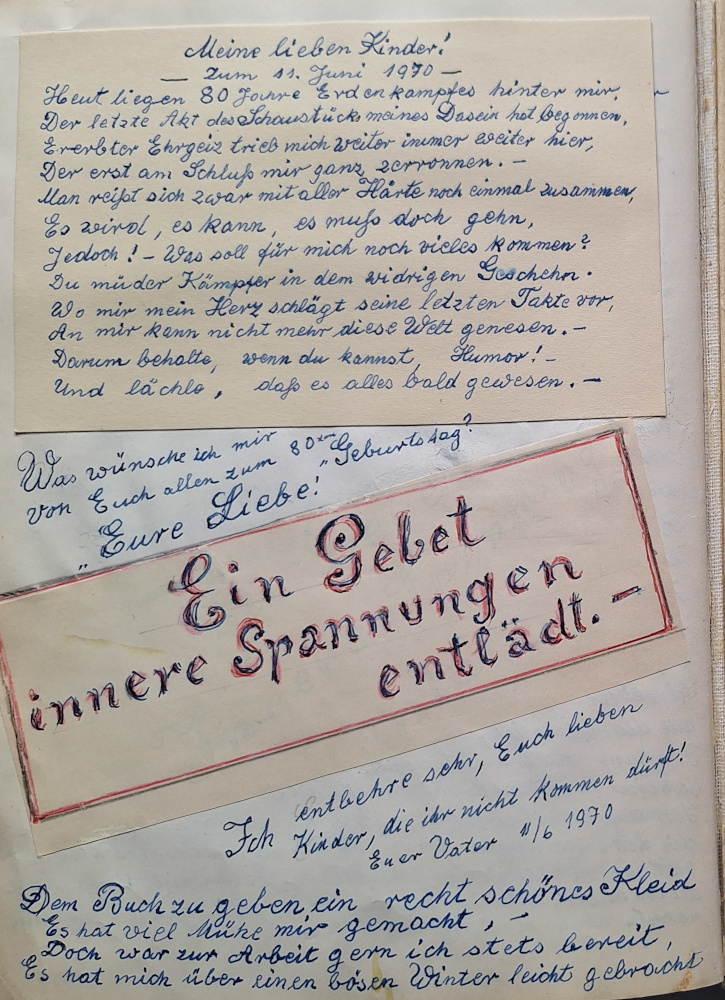 Meine lieben Kinder!
— Zum 11. Juni 1970 —
Heut liegen 80 Jahre Erdenkampfes hinter mir,
Der letzte Akt des Schaustücks meines Dasein hat begonnen,
Ererbter Ehrgeiz trieb mich weiter immer weiter hier,
Der erst am Schluß mir ganz zerronnen. —
Man reißt sich zwar mit aller Härte noch einmal zusammen,
Es wird, es kann, es muß doch gehn,
Jedoch! – Was soll für mich noch vieles kommen?
Du müder Kämpfer in dem widrigen Geschehn.
Wo mir mein Herz schlägt seine letzten Takte vor,
An mir kann nicht mehr diese Welt genesen. —
Darum behalte, wenn du kannst, Humor! –
Und lächle, daß es alles bald gewesen. —
Was wünsche ich mir
von Euch allen zum 80ten "Geburtstag?
"Eure Liebe!
Ein Gebet
innere Spannungen
entlädt. —
Ich entbehre sehr, Euch lieben
Kinder, die ihr nicht kommen dürft!
Euer Vater 11/6 1970
Dem Buch zu geben ein recht schönes Kleid
Es hat viel Mühe mir gemacht, –
Doch war zur Arbeit gern ich stets bereit,
Es hat mich über einen bösen Winter leicht gebracht